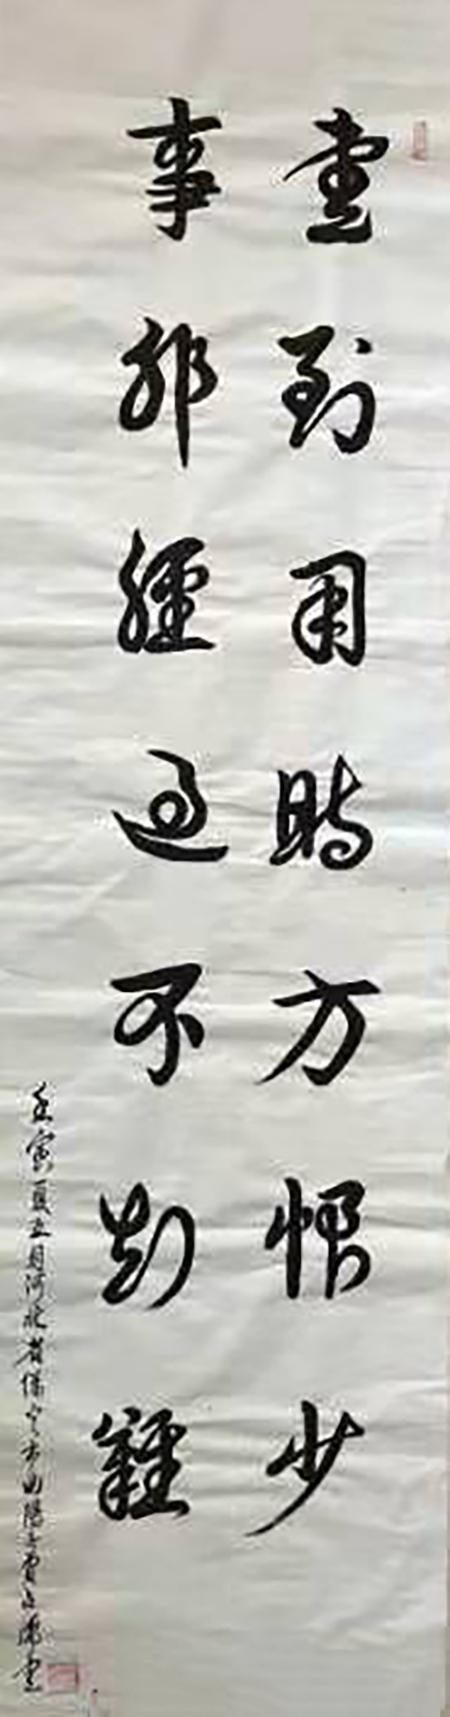 書到用時方恨少
事非經過不知難
壬寅夏五月河北省保定市曲陽